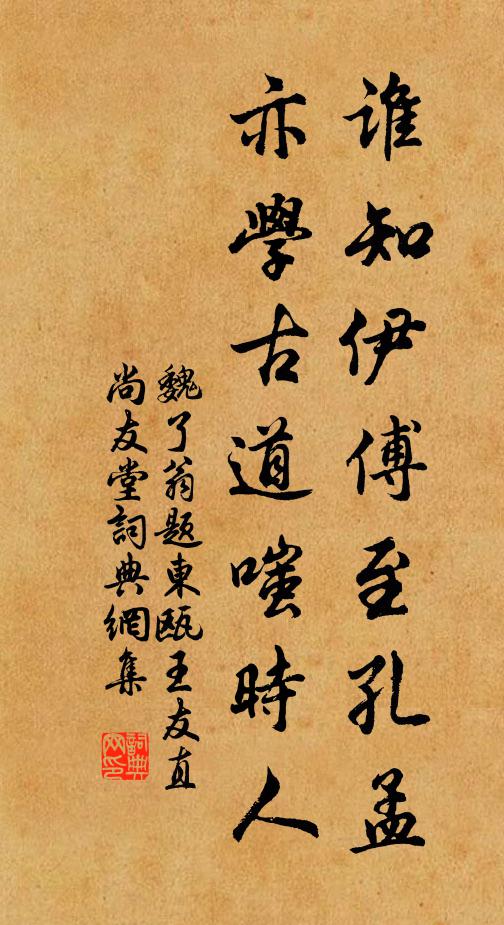 谁知伊傅至孔孟
亦學古道嗤時人
魏了翁題東甌王友直
尚友堂詞典網集
詞典網印